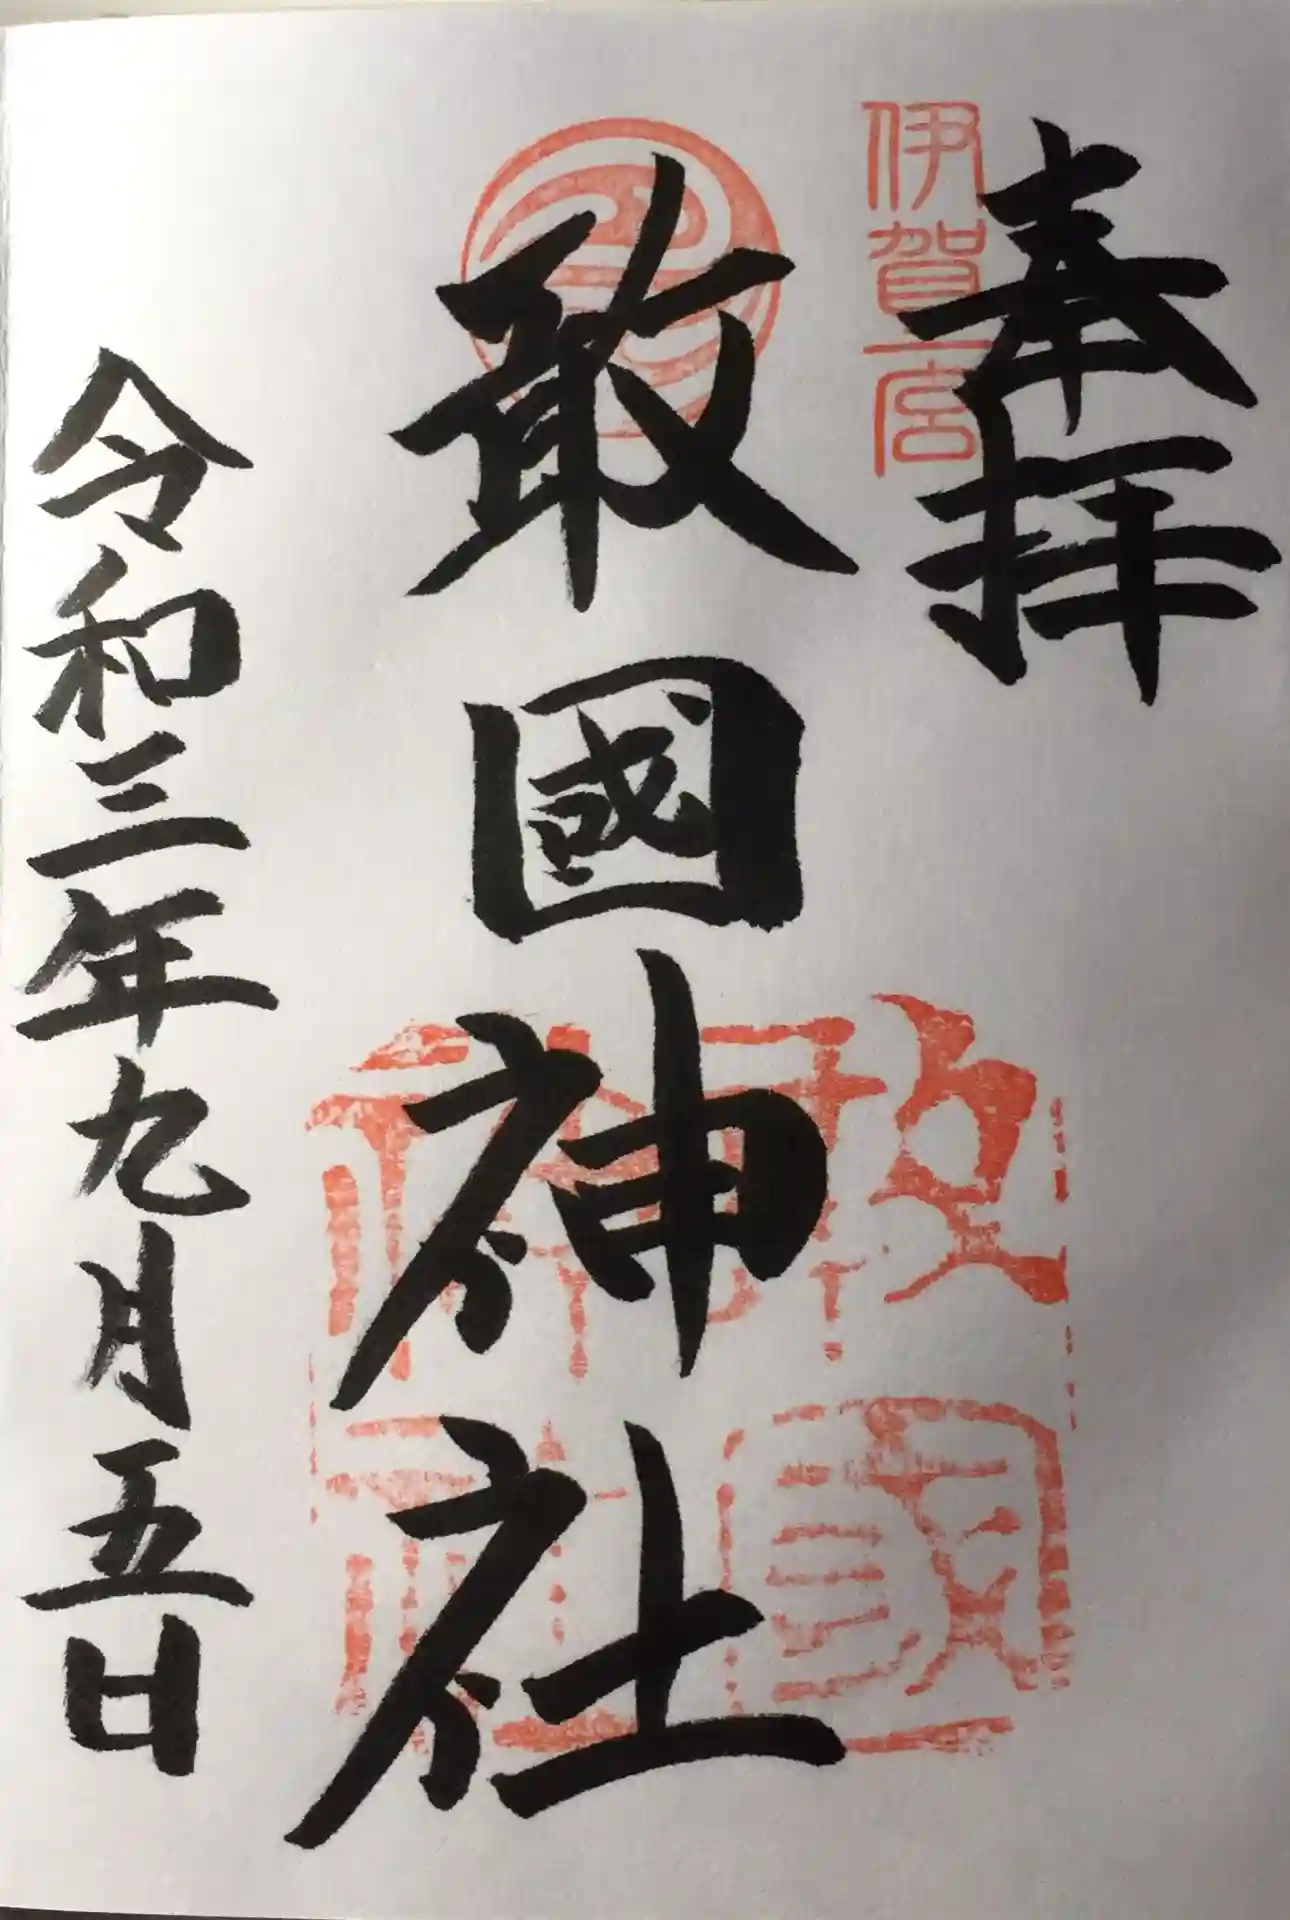 奉拝
伊賀一宮
敢國神社
敢國神社
令和三年九月五日